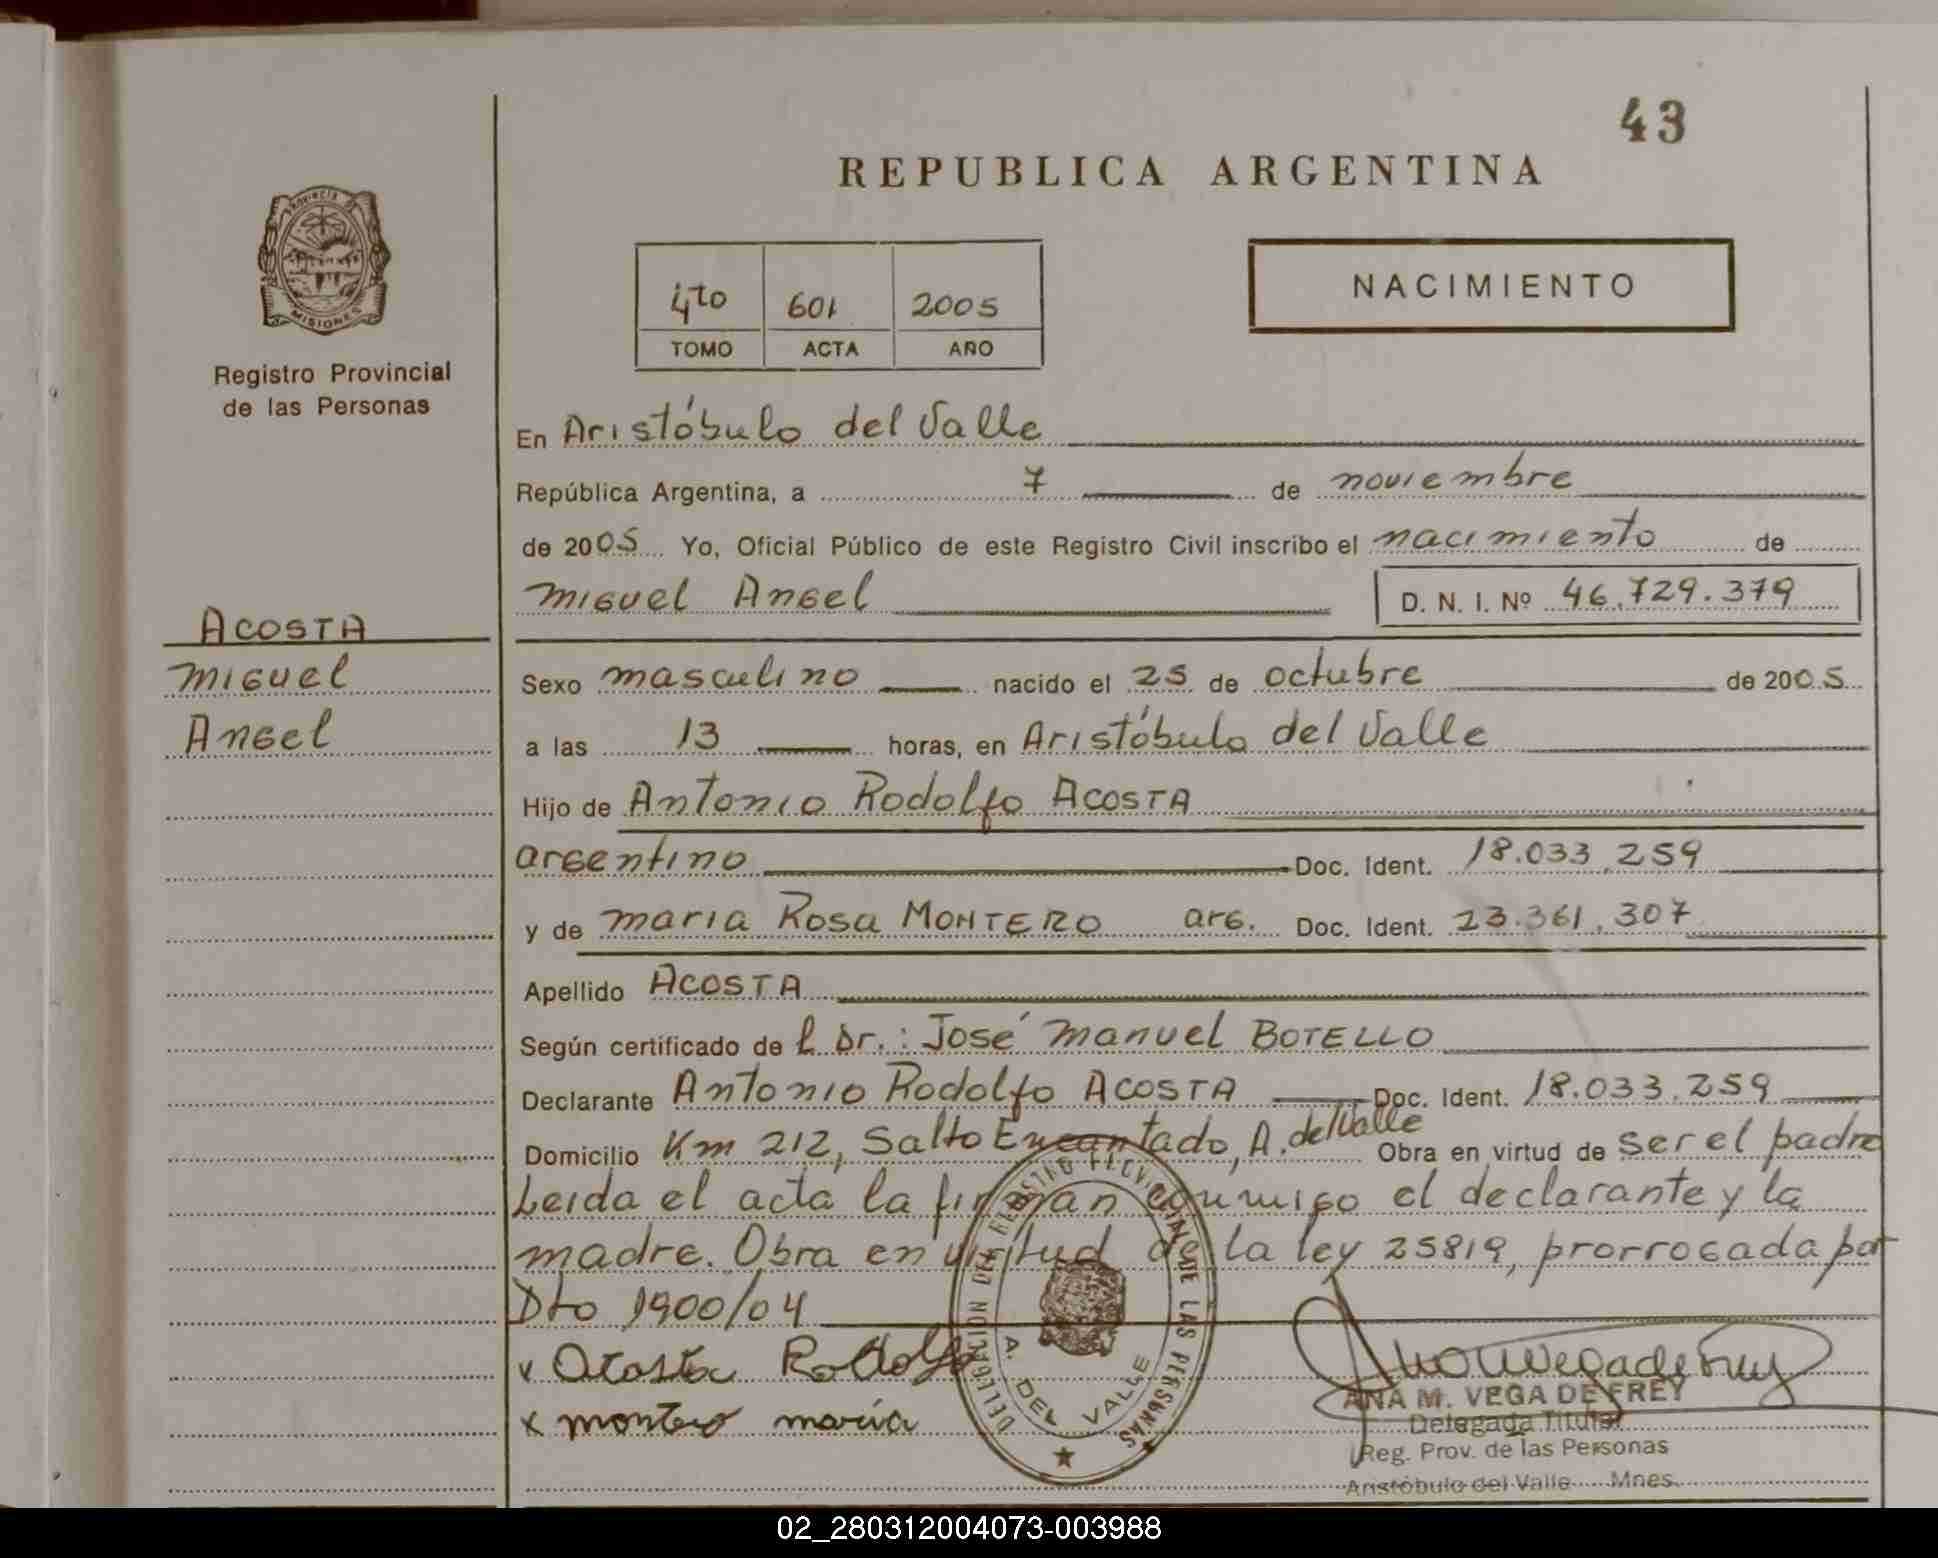 43
REPUBLICA ARGENTINA
Provincia de
MISIONES
Registro Provincial
de las Personas
4to 601 2005
TOMO ACTA AÑO
NACIMIENTO
En Aristóbulo del Valle
República Argentina, a 7 de noviembre
de 2005 Yo, Oficial Público de este Registro Civil inscribo el nacimiento de
Miguel Angel D. N. I. Nº 46.729.379
ACOSTA
Miguel
Angel
Sexo masculino nacido el 25 de octubre de 2005
a las 13 horas, en Aristóbulo del Valle
Hijo de Antonio Rodolfo ACOSTA
argentino Doc. Ident. 18.033.259
y de Maria Rosa MONTERO arg. Doc. Ident. 23.361.307
Apellido ACOSTA
Según certificado de l Dr.: José Manuel BOTELLO
Declarante Antonio Rodolfo ACOSTA Doc. Ident. 18.033.259
Domicilio Km 212, Salto Encantado, A. del Valle Obra en virtud de ser el padre
Leida el acta la firman conmigo el declarante y la
madre. Obra en virtud de la ley 25819, prorrogada por
Dto 1900/04
x Acosta Rodolfo
x montero maría
DELEGACION DEL REGISTRO PROVINCIAL DE LAS PERSONAS
A. DEL VALLE
ANA M. VEGA DE FREY
Delegada Titular
Reg. Prov. de las Personas
Aristóbulo del Valle Mnes.
02_280312004073-003988